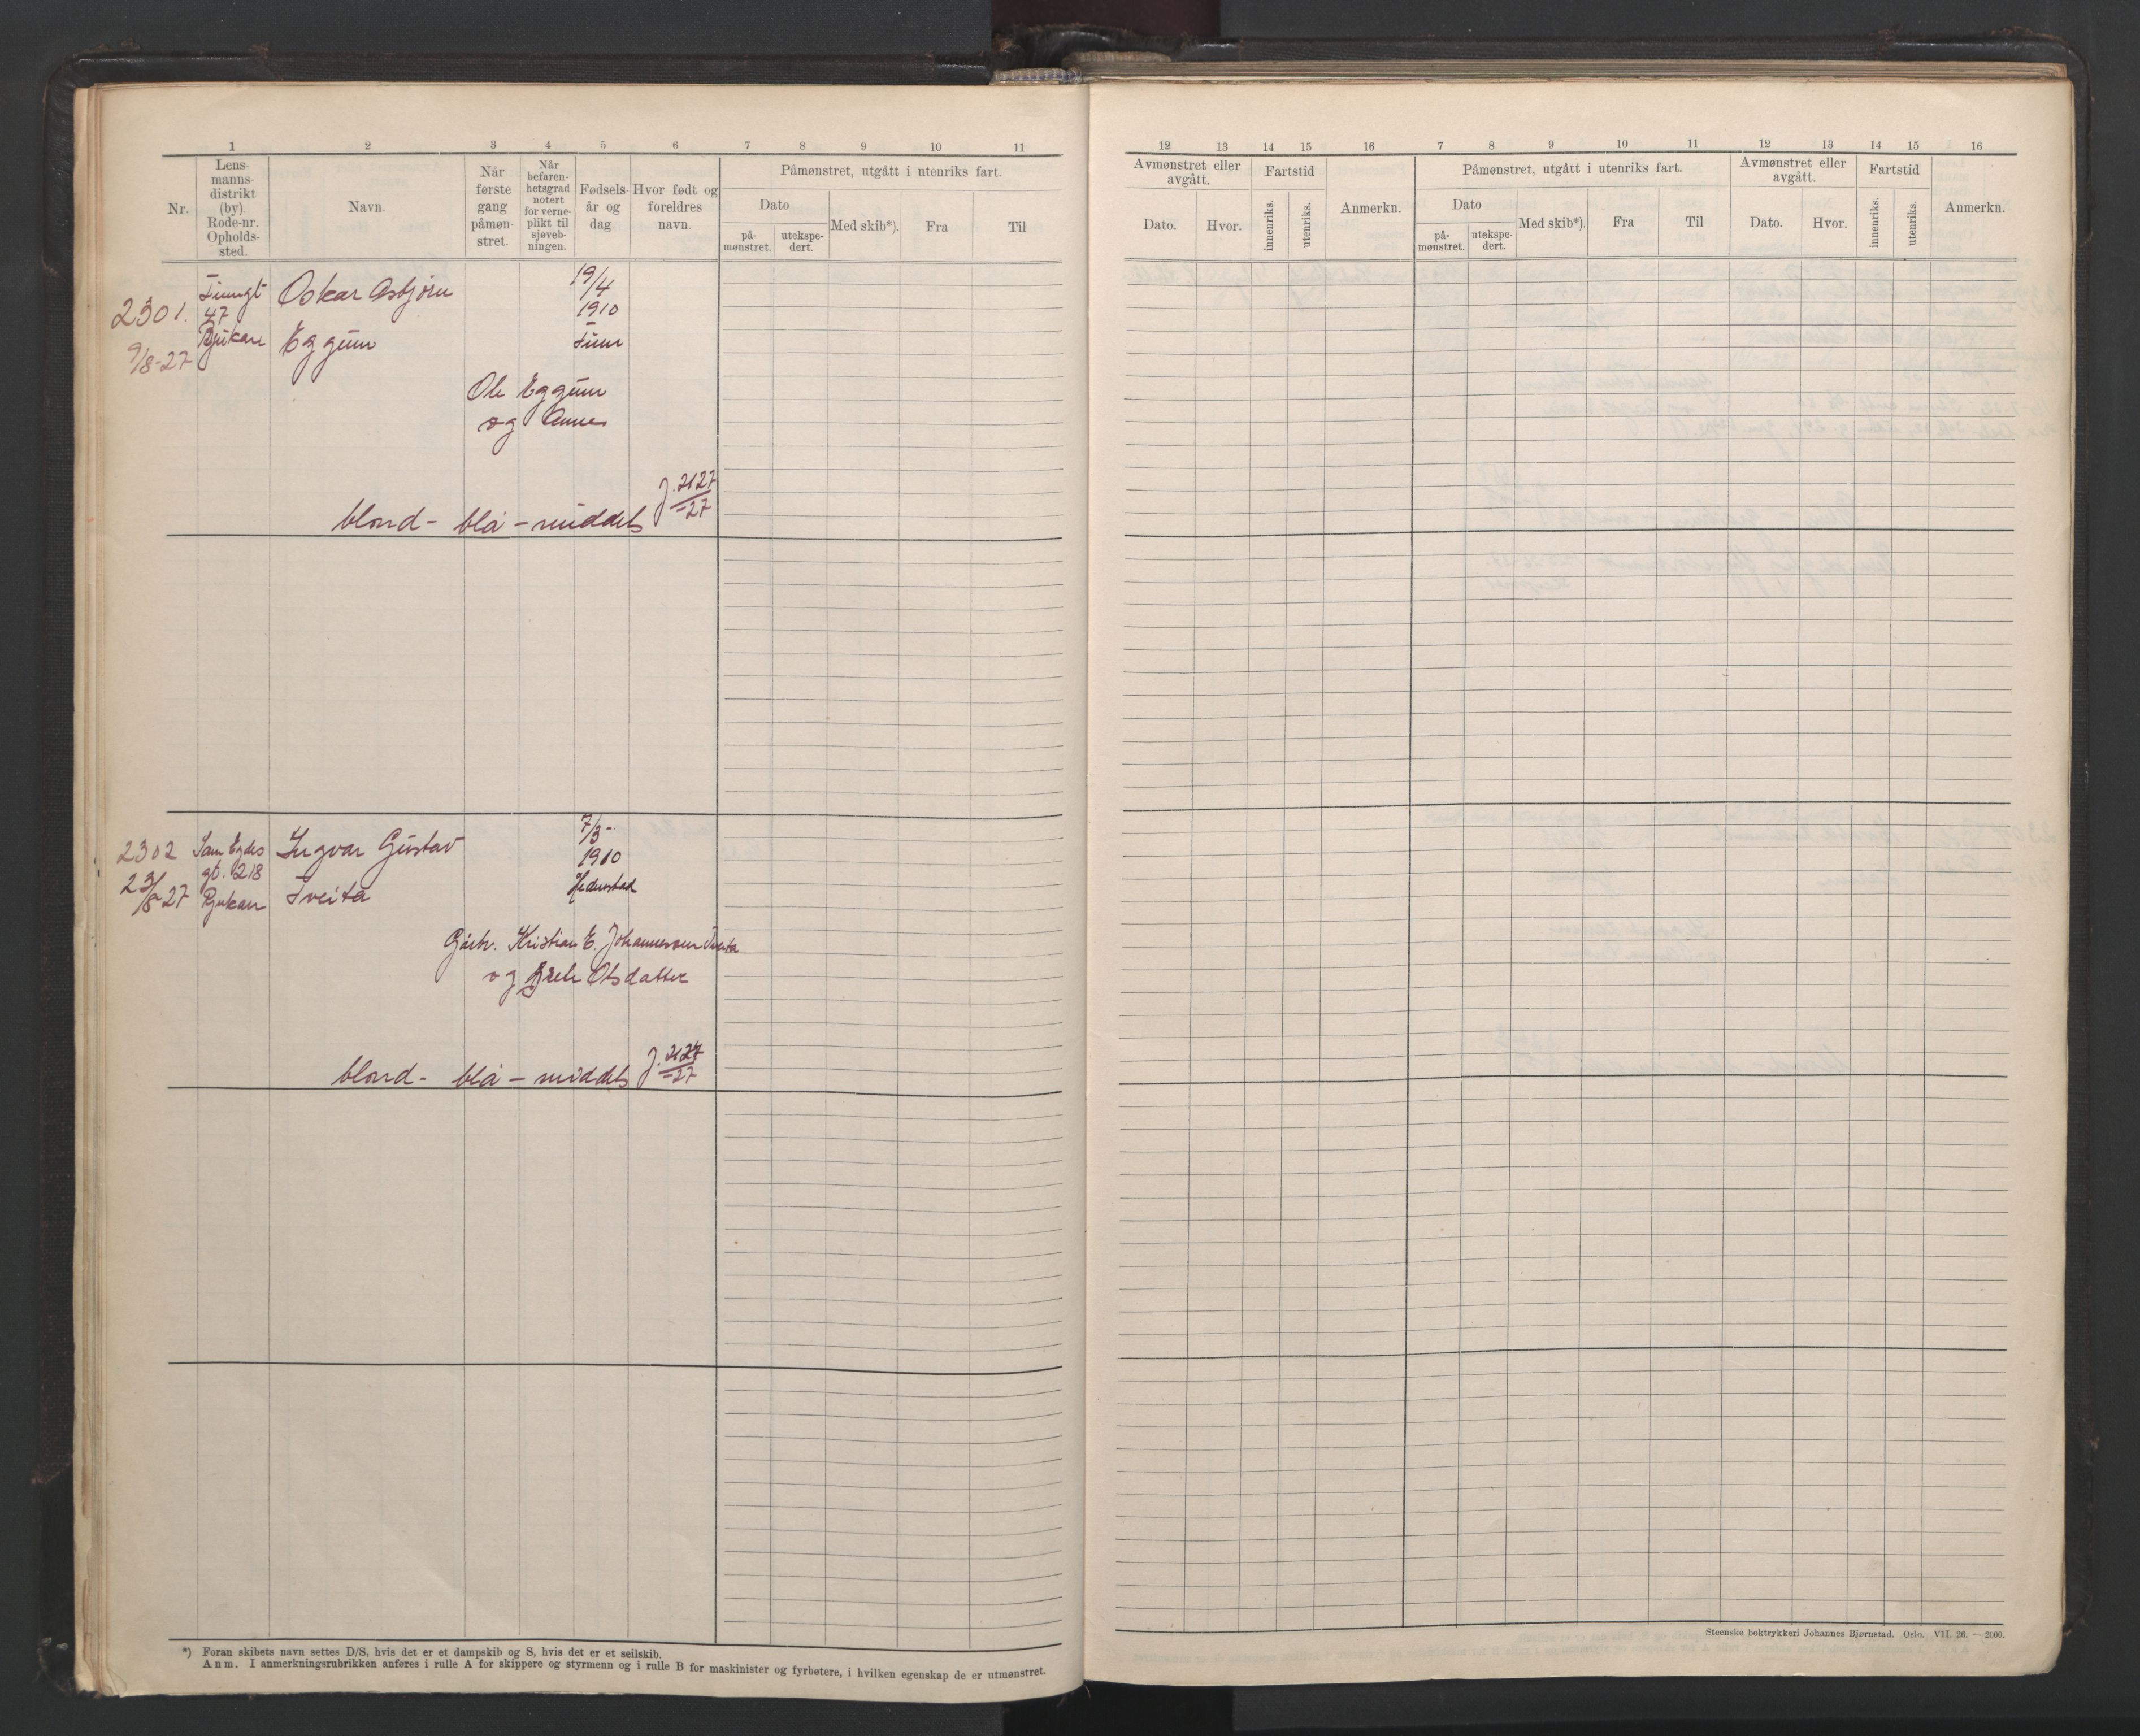 1 2 3 4 5 6 7 8 9 10 11
Nr.
Lens-
manns-
distrikt
(by).
Rode-nr.
Opholds-
sted.
Navn.
Når
første
gang
påmøn-
stret.
Når
befaren-
hetsgrad
notert
for verne-
plikt til
sjøveb-
ningen.
Fødsels-
år og
dag
Hvor født og
foreldres
navn.
Påmønstret, utgått i utenriks fart.
Dato
på-
mønstret.
utekspe-
dert.
Med skib*).
Fra
Til
2301.
9/8-27
47
Rjukan
Oskar Asbjörn
Eggum
19/4
1910
Tinn
Ole Eggum
og Anne
blond - blå - middels J. 2127/-27
2302
23/8-27
Sam Eydes
gt. 218
Rjukan
Ingvar Gustav
Tveita
7/3-
1910
Hedenstad
Kristian E. Johannessen Tveita
og Olsdatter
blond - blå - middels J. 2127/-27
*) Foran skibets navn settes D/S, hvis det er et dampskib og S, hvis det er et seilskib.
Anm. I anmerkningsrubrikken anføres i rulle A for skippere og styrmenn og i rulle B for maskinister og fyrbøtere, i hvilken egenskap de er utmønstret.
12 13 14 15 16 7 8 9 10 11 12 13 14 15 16
Avmønstret eller
avgått.
Dato.
Hvor.
Fartstid
innenriks.
utenriks.
Anmerkn.
Påmønstret, utgått i utenriks fart.
Dato
på-
mønstret.
utekspe-
dert.
Med skib*).
Fra
Til
Avmønstret eller
avgått.
Dato.
Hvor.
Fartstid
innenriks.
utenriks.
Anmerkn.
Steenske boktrykkeri Johannes Bjørnstad. Oslo. VII. 26. — 2000.